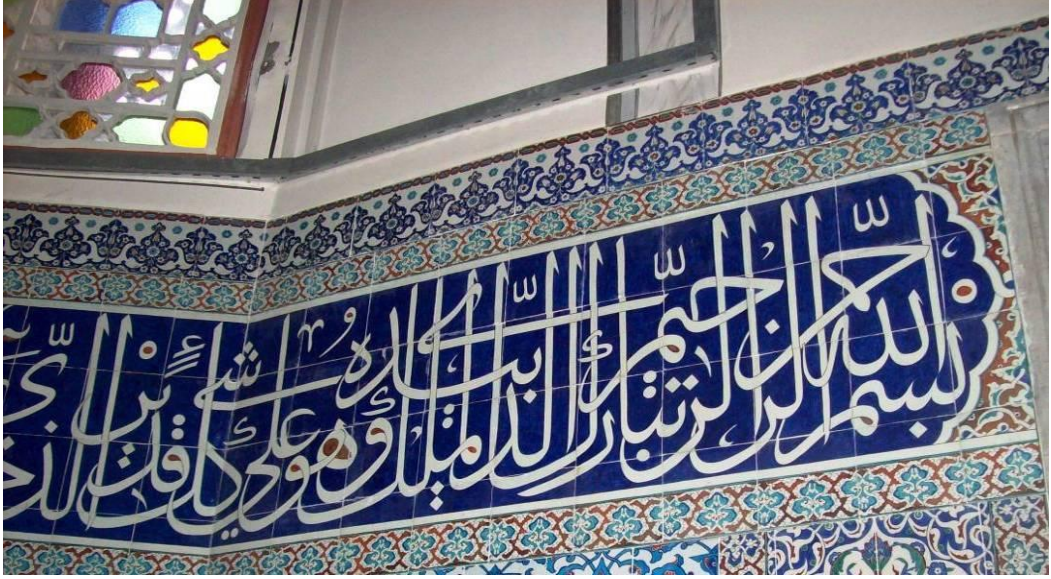 بسم الله الرحمن الرحيم تبارك الذي بيده الملك وهو على كل شيء قدير الذي